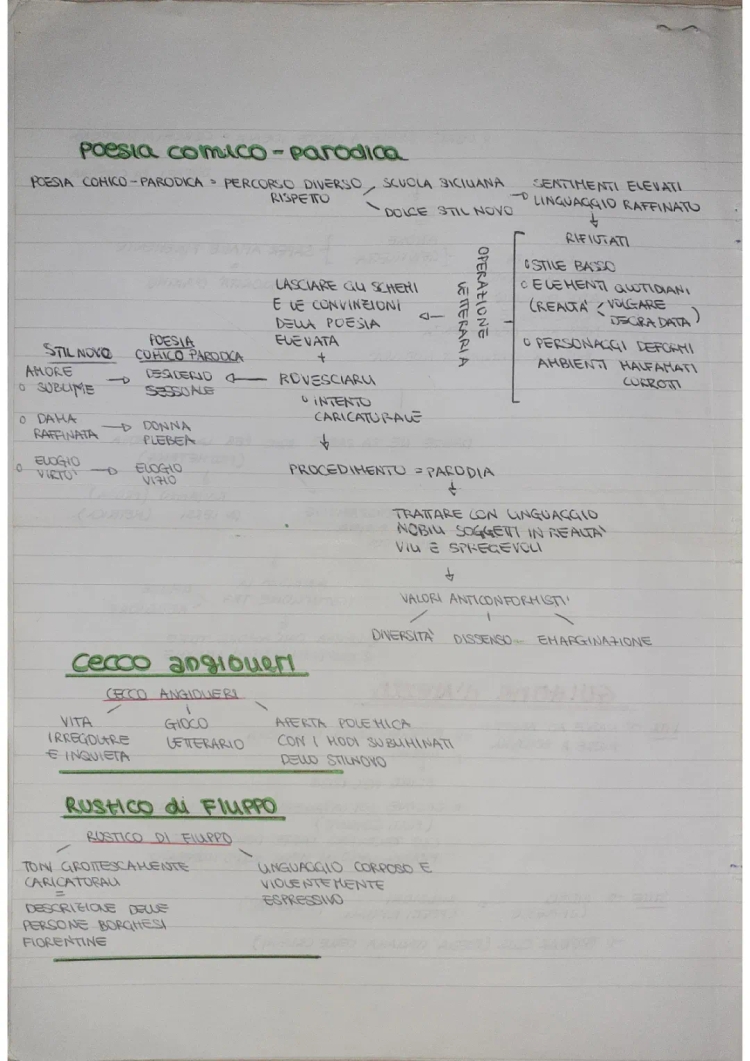 Poesia comico-parodica
POESIA COMICO-PARODICA = PERCORSO DIVERSO
RISPETTO
SCUOLA SICILIANA
DOLCE STIL NOVO
SENTIMENTI ELEVATI
LINGUAGGIO RAFFINATO
RIFIUTATI
STILE BASSO
ELEMENTI QUOTIDIANI
(REALTÀ VOLGARE
DEGRADATA)
PERSONAGGI DEFORMI
AMBIENTI MALFAMATI
CORROTTI
OPERAZIONE
LETTERARIA
LASCIARE GLI SCHEMI
E LE CONVINZIONI
DELLA POESIA
ELEVATA
+
ROVESCIARLI
INTENTO
CARICATURALE
STIL NOVO
POESIA
COMICO PARODICA
AMORE
SUBLIME
DESIDERIO
SESSUALE
DAMA
RAFFINATA
DONNA
PLEBEA
ELOGIO
VIRTU'
ELOGIO
VIZIO
PROCEDIMENTO = PARODIA
TRATTARE CON LINGUAGGIO
NOBILI SOGGETTI IN REALTA'
VILI E SPREGEVOLI
VALORI ANTICONFORMISTI
DIVERSITA' DISSENSO EMARGINAZIONE
Cecco angiolieri
CECCO ANGIOLIERI
VITA
IRREGOLARE
E INQUIETA
GIOCO
LETTERARIO
APERTA POLEMICA
CON I MODI SUBLIMINATI
DELLO STILNOVO
RUSTICO di FILIPPO
RUSTICO DI FILIPPO
TONI GROTTESCAMENTE
CARICATURALI
=
DESCRIZIONE DELLE
PERSONE BORGHESI
FIORENTINE
LINGUAGGIO CORPOSO E
VIOLENTEMENTE
ESPRESSIVO